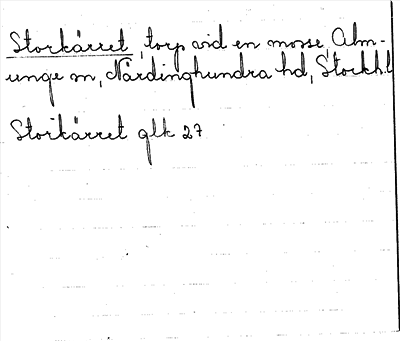 Storkärret, torp vid en mosse, Alm-
unge sn, Närdinghundra hd, Stockh.l
Storkärret glk 27